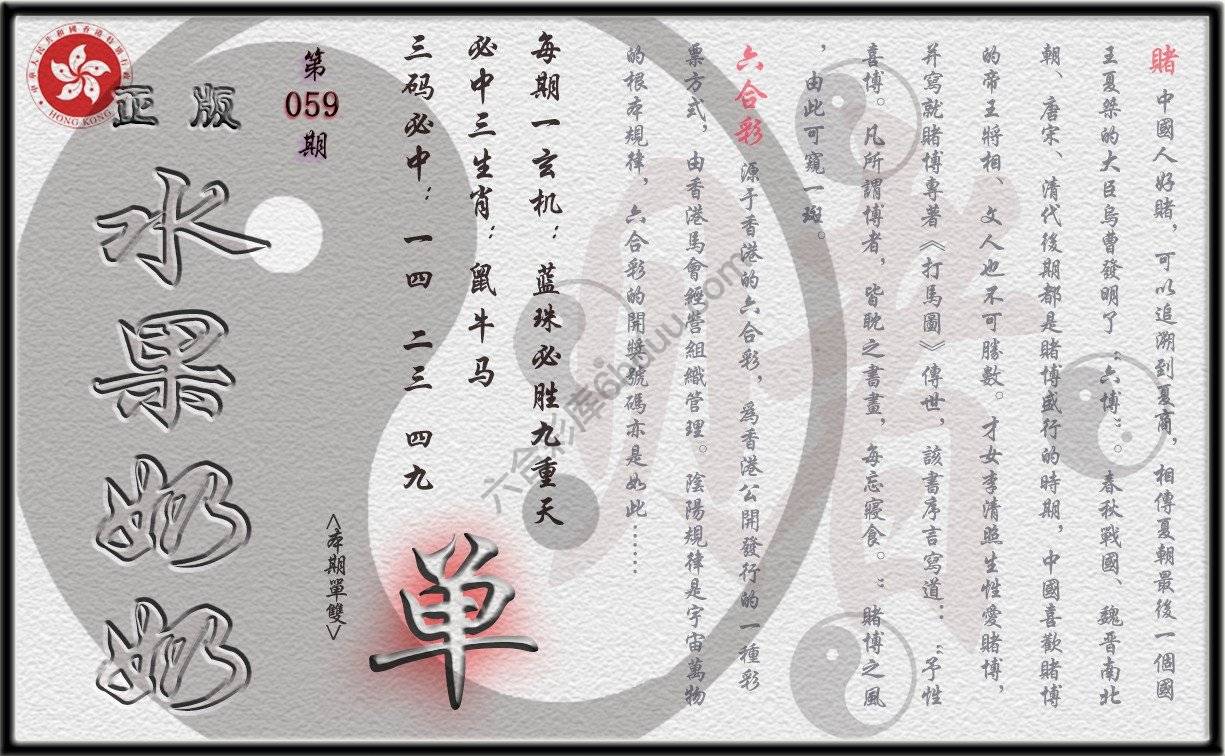 賭 中國人好賭，可以追溯到夏商，相傳夏朝最後一個國
王夏桀的大臣烏曹發明了“六博”。春秋戰國、魏晋南北
朝、唐宋、清代後期都是賭博盛行的時期，中國喜歡賭博
的帝王將相、文人也不可勝數。才女李清照生性愛賭博，
并寫就賭博專著《打馬圖》傳世，該書序言寫道：“予性
喜博。凡所謂博者，皆耽之書畫，每忘寢食。”賭博之風
，由此可窺一斑。
六合彩 源于香港的六合彩，爲香港公開發行的一種彩
票方式，由香港馬會經營組織管理。陰陽規律是宇宙萬物
的根本規律，六合彩的開獎號碼亦是如此……
每期一玄机：蓝珠必胜九重天
必中三生肖：鼠牛马
三码必中：一四 二三 四九
第
059
期
<本期單雙>
单
正版
水果奶奶
中華人民共和國香港特別行政區
HONG KONG
六合彩库6huuu.com